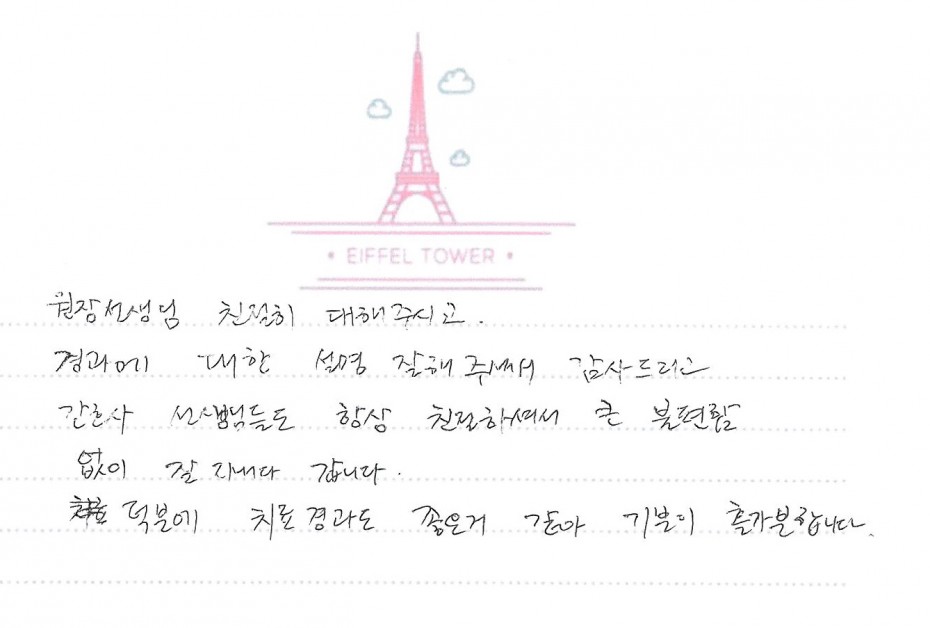 • EIFFEL TOWER •
원장선생님 친절히 대해주시고.
경과에 대한 설명 잘해주셔서 감사드리고
간호사 선생님들도 항상 친절하셔서 큰 불편함
없이 잘 지내다 갑니다.
덕분에 치료경과도 좋은거 같아 기분이 홀가분합니다.